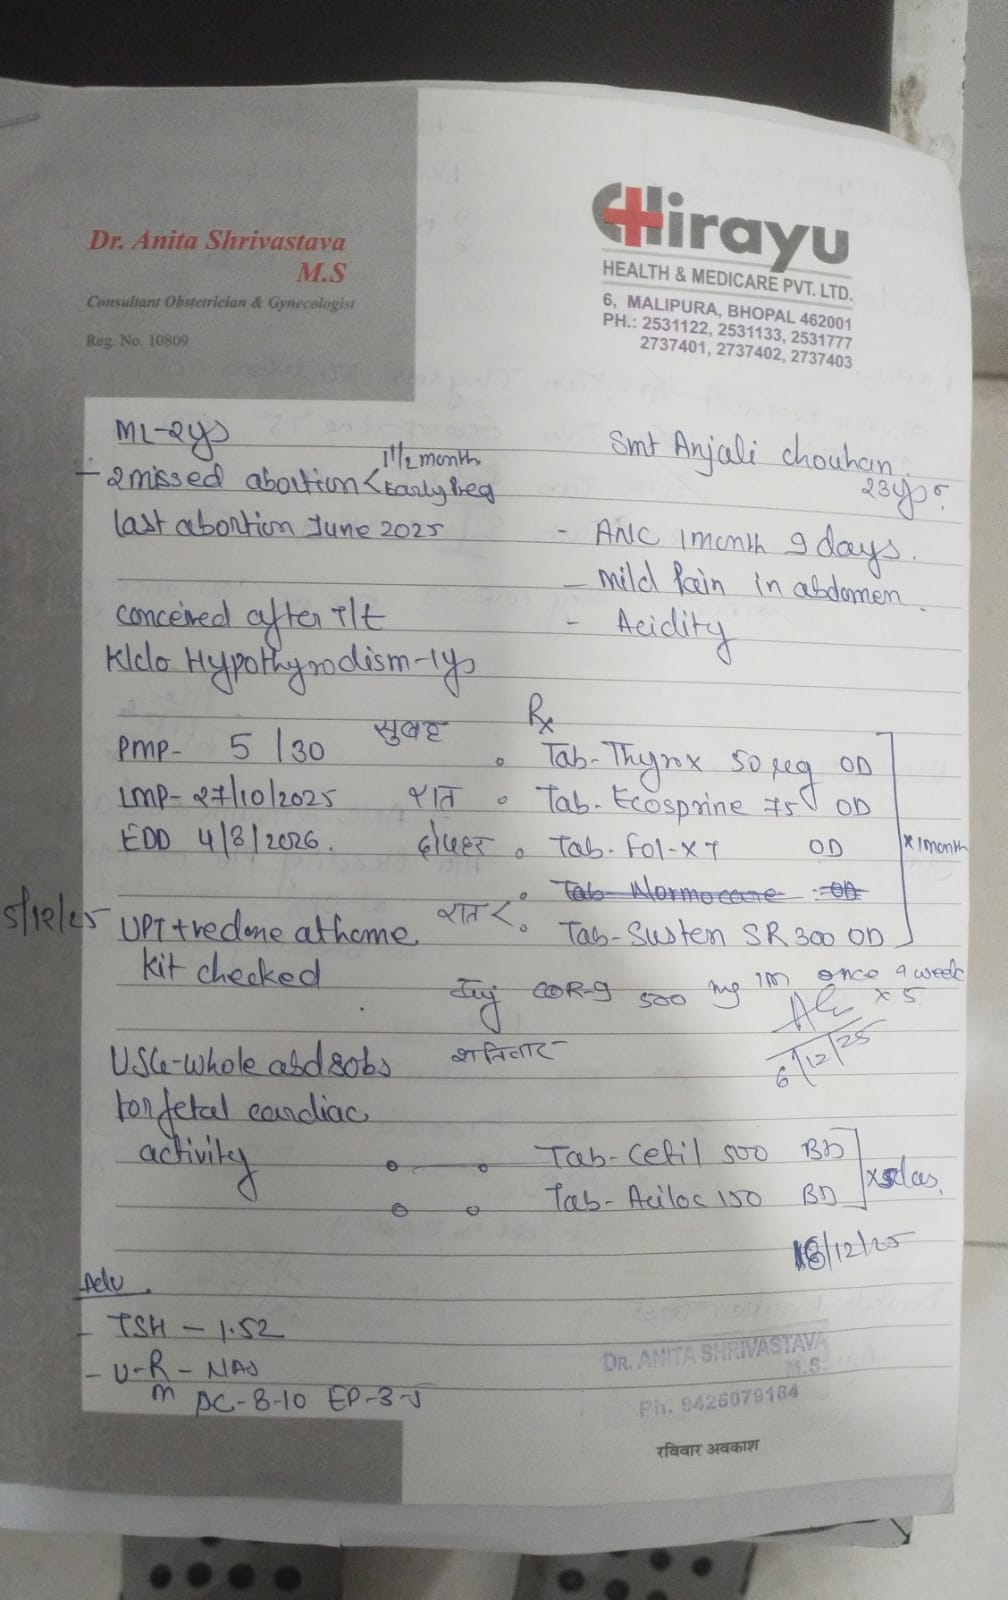 Dr. Anita Shrivastava
M.S
Consultant Obstetrician & Gynecologist
Reg. No. 10809
CHirayu
HEALTH & MEDICARE PVT. LTD.
6, MALIPURA, BHOPAL 462001
PH.: 2531122, 2531133, 2531777
2737401, 2737402, 2737403
Smt Anjali chouhan
23yrs
ML-2ys
- 2 missed abortion < 1 1/2 month
Early Preg
last abortion June 2025
conceived after T/t
K/c/o Hypothyrodism-1ys
- ANC 1month 9 days.
- mild Pain in abdomen.
- Acidity
PMP- 5/30
LMP- 27/10/2025
EDD 4/8/2026.
5/12/25 UPT +ve done at home
kit checked
USG-whole abd & obs
for fetal cardiac
activity
Rx
सुबह Tab-Thyrox 50 µg OD
रात Tab. Ecosprine 75 OD
दोपहर Tab. Fol-X 7 OD
Tab Normocane OD
रात < Tab-Susten SR 300 OD
x 1month
Inj COR-9 500 mg IM once a week
x 5
शनिवार
6/12/25
Tab-Cefil 500 BD
Tab-Aciloc 150 BD
/12/25
Adv
- TSH - 1.52
- U-R - NAD
m PC-8-10 EP-3-5
DR. ANITA SHRIVASTAVA
M.S.
Ph. 9426079184
रविवार अवकाश